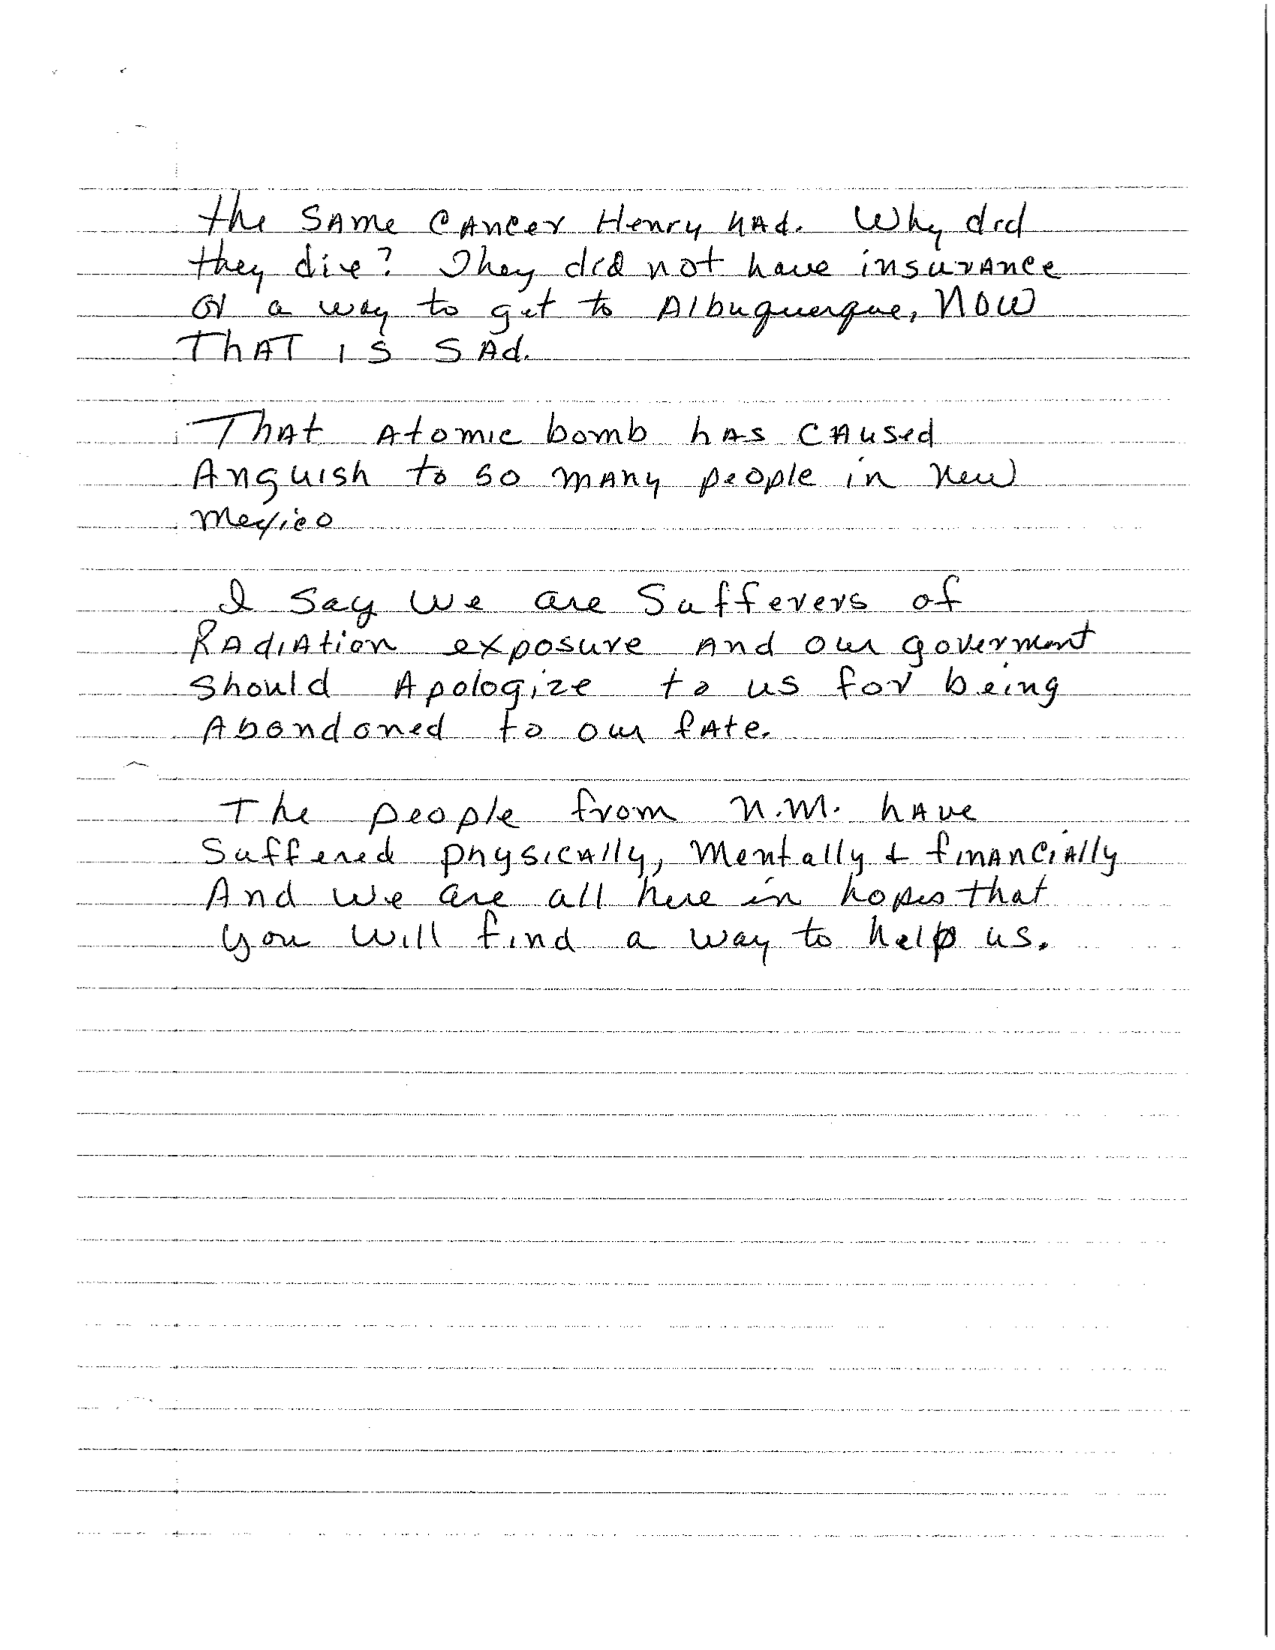 the SAme CANCer Henry hAd. Why did
they die? They did not have insurANce
or a way to get to Albuquerque, NOW
THAT IS SAd.
ThAt Atomic bomb hAs CAused
Anguish to so mANy people in New
Mexico
I say we are Sufferers of
RAdiAtion exposure ANd our goverment
Should Apologize to us for being
Abondoned to our fAte.
The people from N.M. hAve
Suffered physicAlly, Mentally & finANciAlly
And we are all here in hopes that
you will find a way to help us.